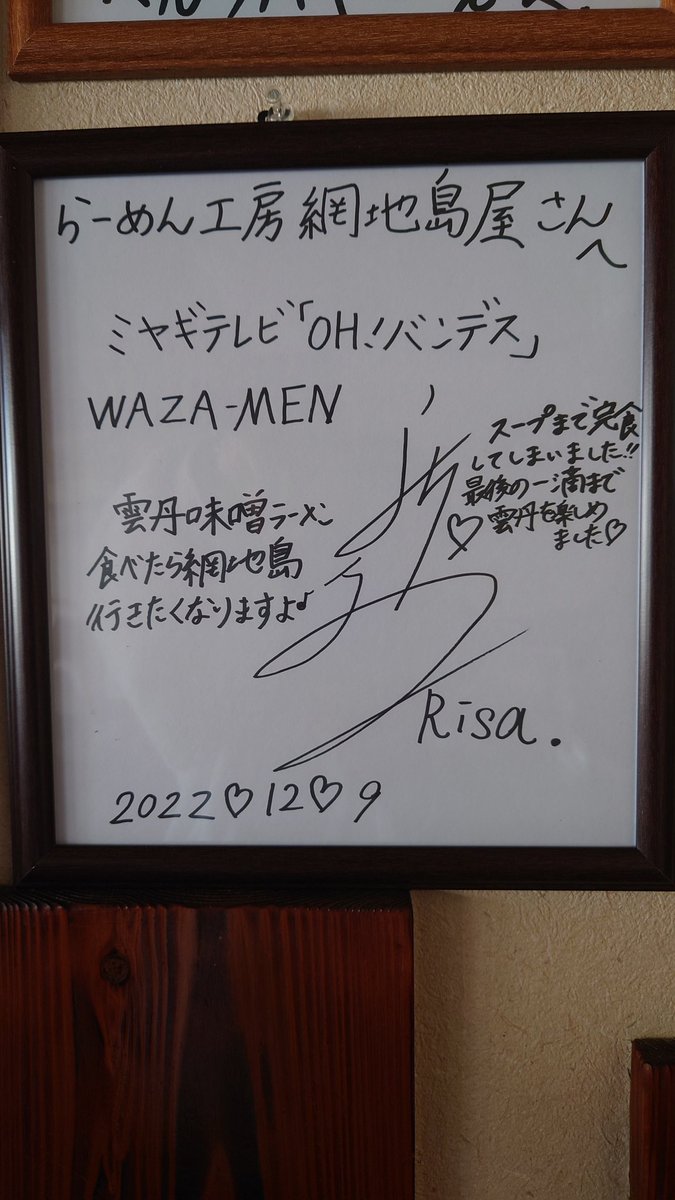 らーめん工房 網地島屋さんへ
ミヤギテレビ「OH!バンデス」
WAZA-MEN
スープまで完食
してしまいました!!
最後の一滴まで
雲丹を楽しめ
ました♡
雲丹味噌ラーメン
食べたら網地島
行きたくなりますよ♪
Risa.
2022♡12♡9